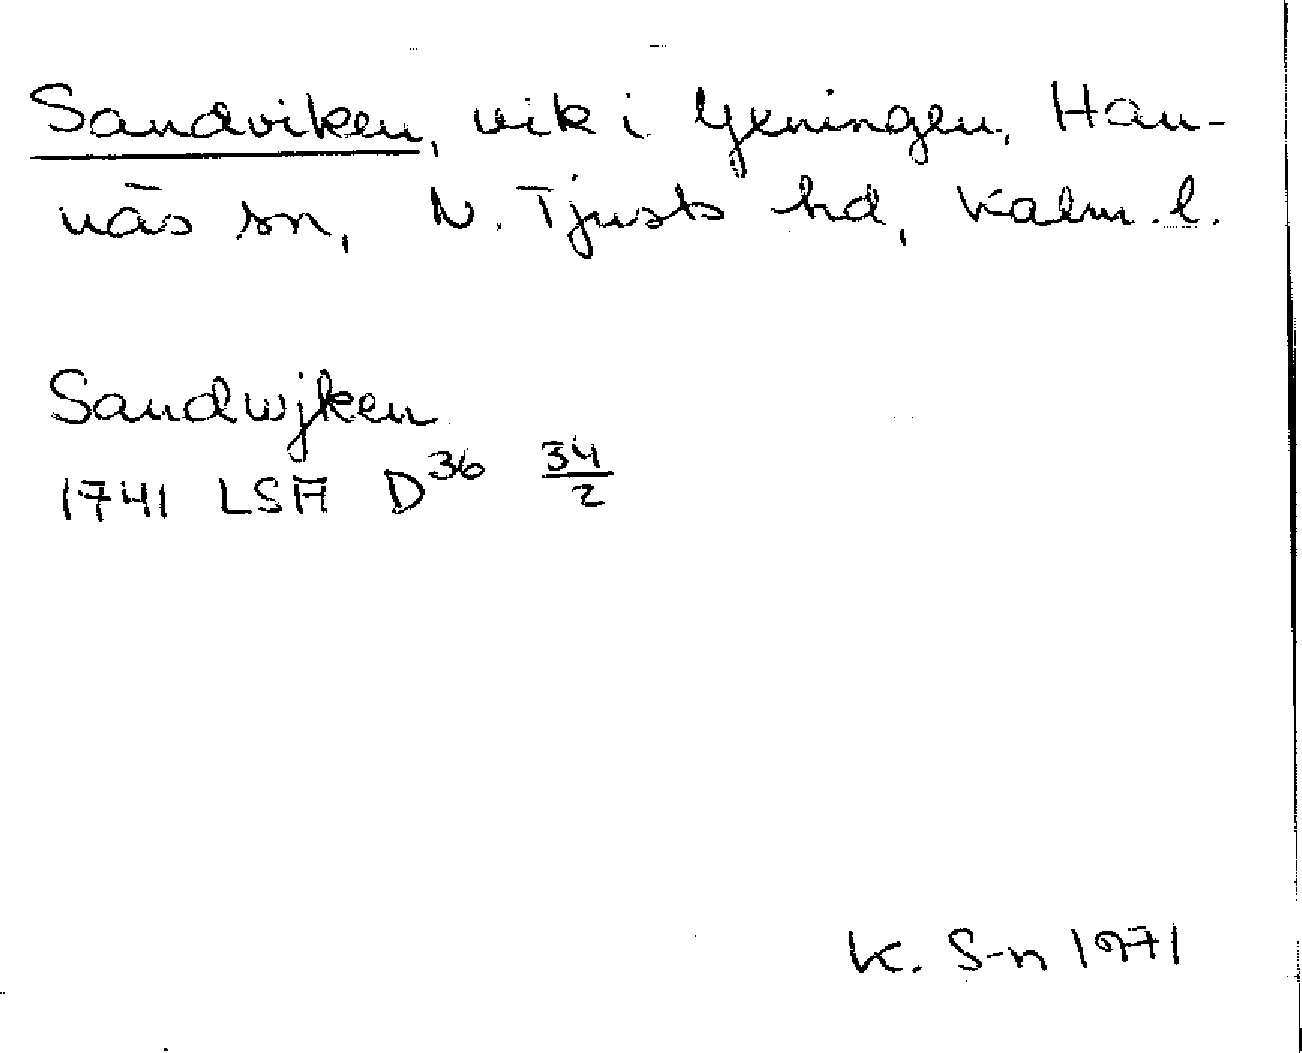 Sandviken, vik i Yxningen, Han-
näs sn, N. Tjusts hd, Kalm. l.
Sandwjken
1741 LSA D36 34/2
K. S-n 1971